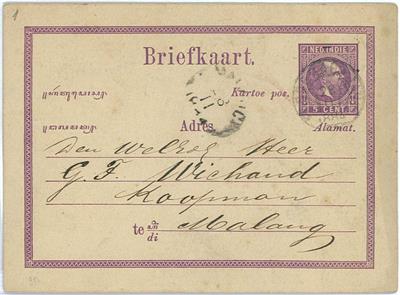 1
Briefkaart.
NED-INDIE
Kartoe pos.
5 CENT
Adres
Alamat.
Den Welred Heer
G. F. Wiehand
Koopman
te
di
Malang